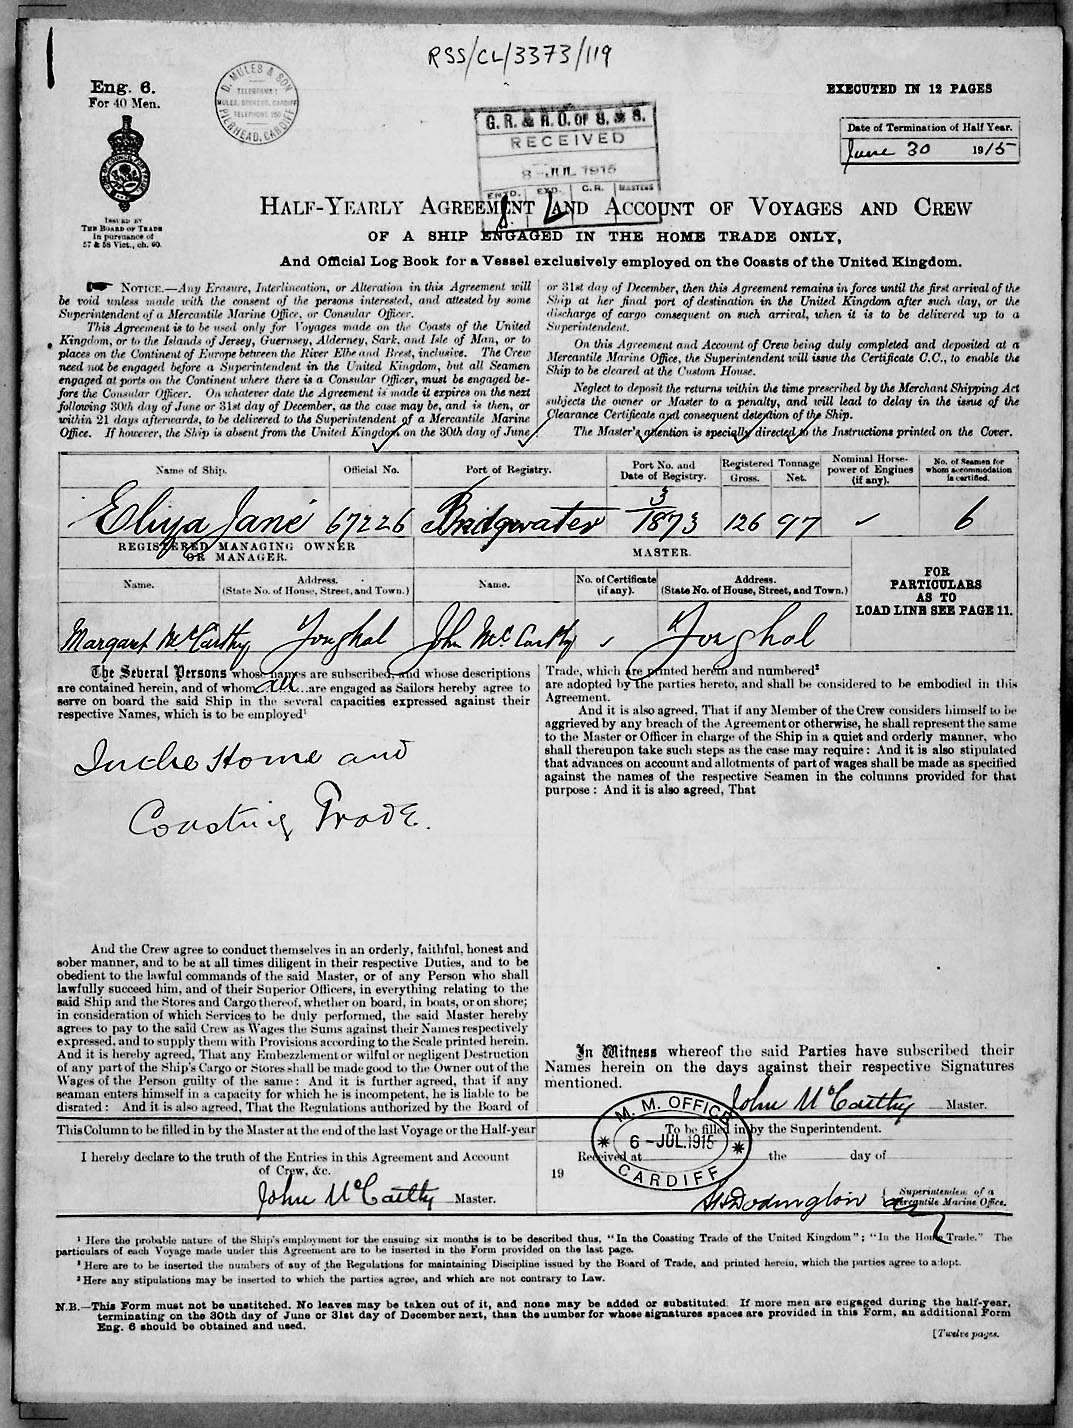 RSS/CL/3373/119
Eng. 6.
For 40 Men.
D. MULES & SON
TELEGRAMS:
MULES, BROKERS, CARDIFF
TELEPHONE 250
PIERHEAD, CARDIFF
EXECUTED IN 12 PAGES
G. R. & R. O. OF S. & S.
RECEIVED
8-JUL 1915
ENTD. EXD. C.R. MASTERS
Date of Termination of Half Year.
June 30 1915
ISSUED BY
THE BOARD OF TRADE
In pursuance of
57 & 58 Vict., ch. 60.
HALF-YEARLY AGREEMENT AND ACCOUNT OF VOYAGES AND CREW
OF A SHIP ENGAGED IN THE HOME TRADE ONLY,
And Official Log Book for a Vessel exclusively employed on the Coasts of the United Kingdom.
NOTICE.—Any Erasure, Interlineation, or Alteration in this Agreement will
be void unless made with the consent of the persons interested, and attested by some
Superintendent of a Mercantile Marine Office, or Consular Officer.
This Agreement is to be used only for Voyages made on the Coasts of the United
Kingdom, or to the Islands of Jersey, Guernsey, Alderney, Sark, and Isle of Man, or to
places on the Continent of Europe between the River Elbe and Brest, inclusive. The Crew
need not be engaged before a Superintendent in the United Kingdom, but all Seamen
engaged at ports on the Continent where there is a Consular Officer, must be engaged be-
fore the Consular Officer. On whatever date the Agreement is made it expires on the next
following 30th day of June or 31st day of December, as the case may be, and is then, or
within 21 days afterwards, to be delivered to the Superintendent of a Mercantile Marine
Office. If however, the Ship is absent from the United Kingdom on the 30th day of June
or 31st day of December, then this Agreement remains in force until the first arrival of the
Ship at her final port of destination in the United Kingdom after such day, or the
discharge of cargo consequent on such arrival, when it is to be delivered up to a
Superintendent.
On this Agreement and Account of Crew being duly completed and deposited at a
Mercantile Marine Office, the Superintendent will issue the Certificate C.C., to enable the
Ship to be cleared at the Custom House.
Neglect to deposit the returns within the time prescribed by the Merchant Shipping Act
subjects the owner or Master to a penalty, and will lead to delay in the issue of the
Clearance Certificate and consequent detention of the Ship.
The Master's attention is specially directed to the Instructions printed on the Cover.
Name of Ship. Official No. Port of Registry. Port No. and Date of Registry. Registered Tonnage Gross. Net. Nominal Horse-power of Engines (if any). No. of Seamen for whom accommodation is certified.
Eliza Jane 67226 Bridgwater 3/1873 126 97 6
REGISTERED MANAGING OWNER
OR MANAGER.
MASTER.
Name. Address. (State No. of House, Street, and Town.) Name. No. of Certificate (if any). Address. (State No. of House, Street, and Town.)
FOR
PARTICULARS
AS TO
LOAD LINE SEE PAGE 11.
Margaret McCarthy Youghal John McCarthy Youghal
The Several Persons whose names are subscribed, and whose descriptions
are contained herein, and of whom all are engaged as Sailors hereby agree to
serve on board the said Ship in the several capacities expressed against their
respective Names, which is to be employed¹
In the Home and
Coasting Trade.
And the Crew agree to conduct themselves in an orderly, faithful, honest and
sober manner, and to be at all times diligent in their respective Duties, and to be
obedient to the lawful commands of the said Master, or of any Person who shall
lawfully succeed him, and of their Superior Officers, in everything relating to the
said Ship and the Stores and Cargo thereof, whether on board, in boats, or on shore;
in consideration of which Services to be duly performed, the said Master hereby
agrees to pay to the said Crew as Wages the Sums against their Names respectively
expressed, and to supply them with Provisions according to the Scale printed herein.
And it is hereby agreed, That any Embezzlement or wilful or negligent Destruction
of any part of the Ship's Cargo or Stores shall be made good to the Owner out of the
Wages of the Person guilty of the same: And it is further agreed, that if any
seaman enters himself in a capacity for which he is incompetent, he is liable to be
disrated: And it is also agreed, That the Regulations authorized by the Board of
Trade, which are printed herein and numbered²
are adopted by the parties hereto, and shall be considered to be embodied in this
Agreement.
And it is also agreed, That if any Member of the Crew considers himself to be
aggrieved by any breach of the Agreement or otherwise, he shall represent the same
to the Master or Officer in charge of the Ship in a quiet and orderly manner, who
shall thereupon take such steps as the case may require: And it is also stipulated
that advances on account and allotments of part of wages shall be made as specified
against the names of the respective Seamen in the columns provided for that
purpose: And it is also agreed, That
In Witness whereof the said Parties have subscribed their
Names herein on the days against their respective Signatures
mentioned.
John McCarthy Master.
This Column to be filled in by the Master at the end of the last Voyage or the Half-year
I hereby declare to the truth of the Entries in this Agreement and Account
of Crew, &c.
John McCarthy Master.
To be filled in by the Superintendent.
Received at the day of
19
M. M. OFFICE
6-JUL.1915
CARDIFF
Superintendent of a
Mercantile Marine Office.
¹ Here the probable nature of the Ship's employment for the ensuing six months is to be described thus, "In the Coasting Trade of the United Kingdom"; "In the Home Trade." The
particulars of each Voyage made under this Agreement are to be inserted in the Form provided on the last page.
² Here are to be inserted the numbers of any of the Regulations for maintaining Discipline issued by the Board of Trade, and printed herein, which the parties agree to adopt.
³ Here any stipulations may be inserted to which the parties agree, and which are not contrary to Law.
N.B.—This Form must not be unstitched. No leaves may be taken out of it, and none may be added or substituted. If more men are engaged during the half-year,
terminating on the 30th day of June or 31st day of December next, than the number for whose signatures spaces are provided in this Form, an additional Form
Eng. 6 should be obtained and used.
[Twelve pages.